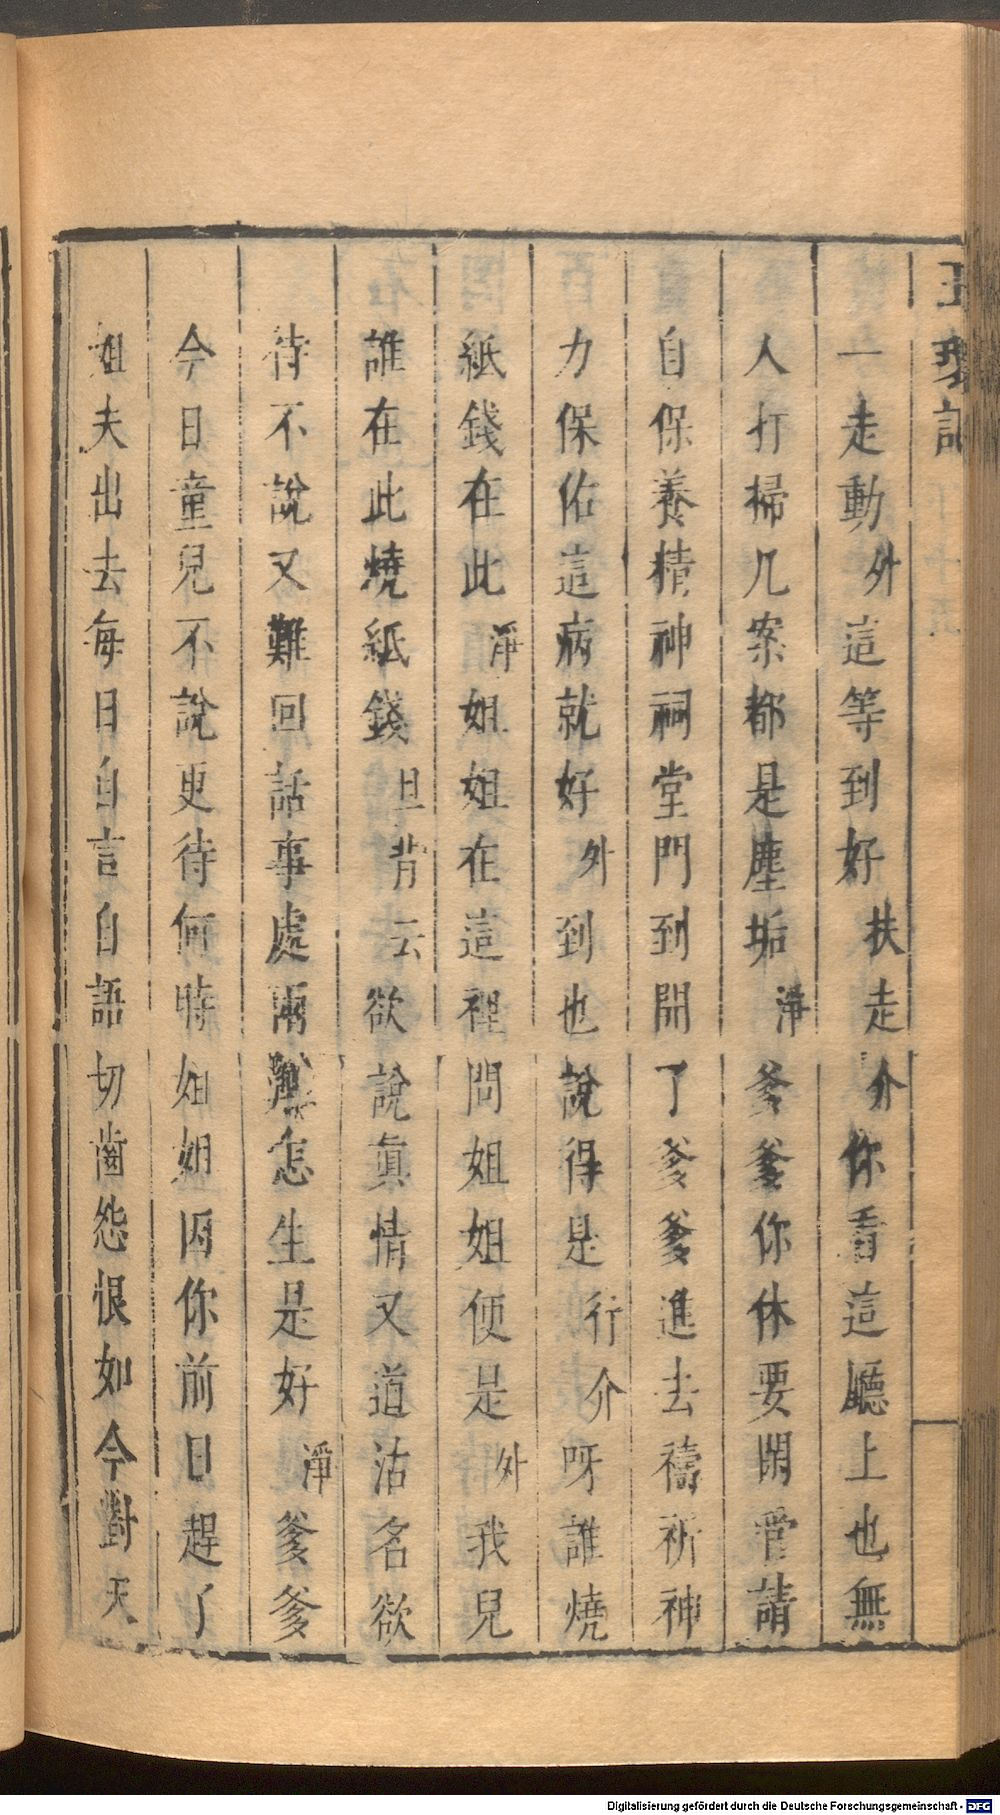 一走動外這等到好扶走介你看這廳上也無
人打掃几案都是塵垢淨爹爹你休要閑管請
自保養精神祠堂門到開了爹爹進去禱祈神
力保佑這病就好外到也說得是行介呀誰燒
紙錢在此淨姐姐在這裡問姐姐便是外我兒
誰在此燒紙錢旦背云欲說真情又道沽名欲
待不說又難回話事處兩難怎生是好淨爹爹
今日童兒不說更待何時姐姐因你前日趕了
姐夫出去每日自言自語切齒怨恨如今對天
Digitalisierung gefördert durch die Deutsche Forschungsgemeinschaft - DFG